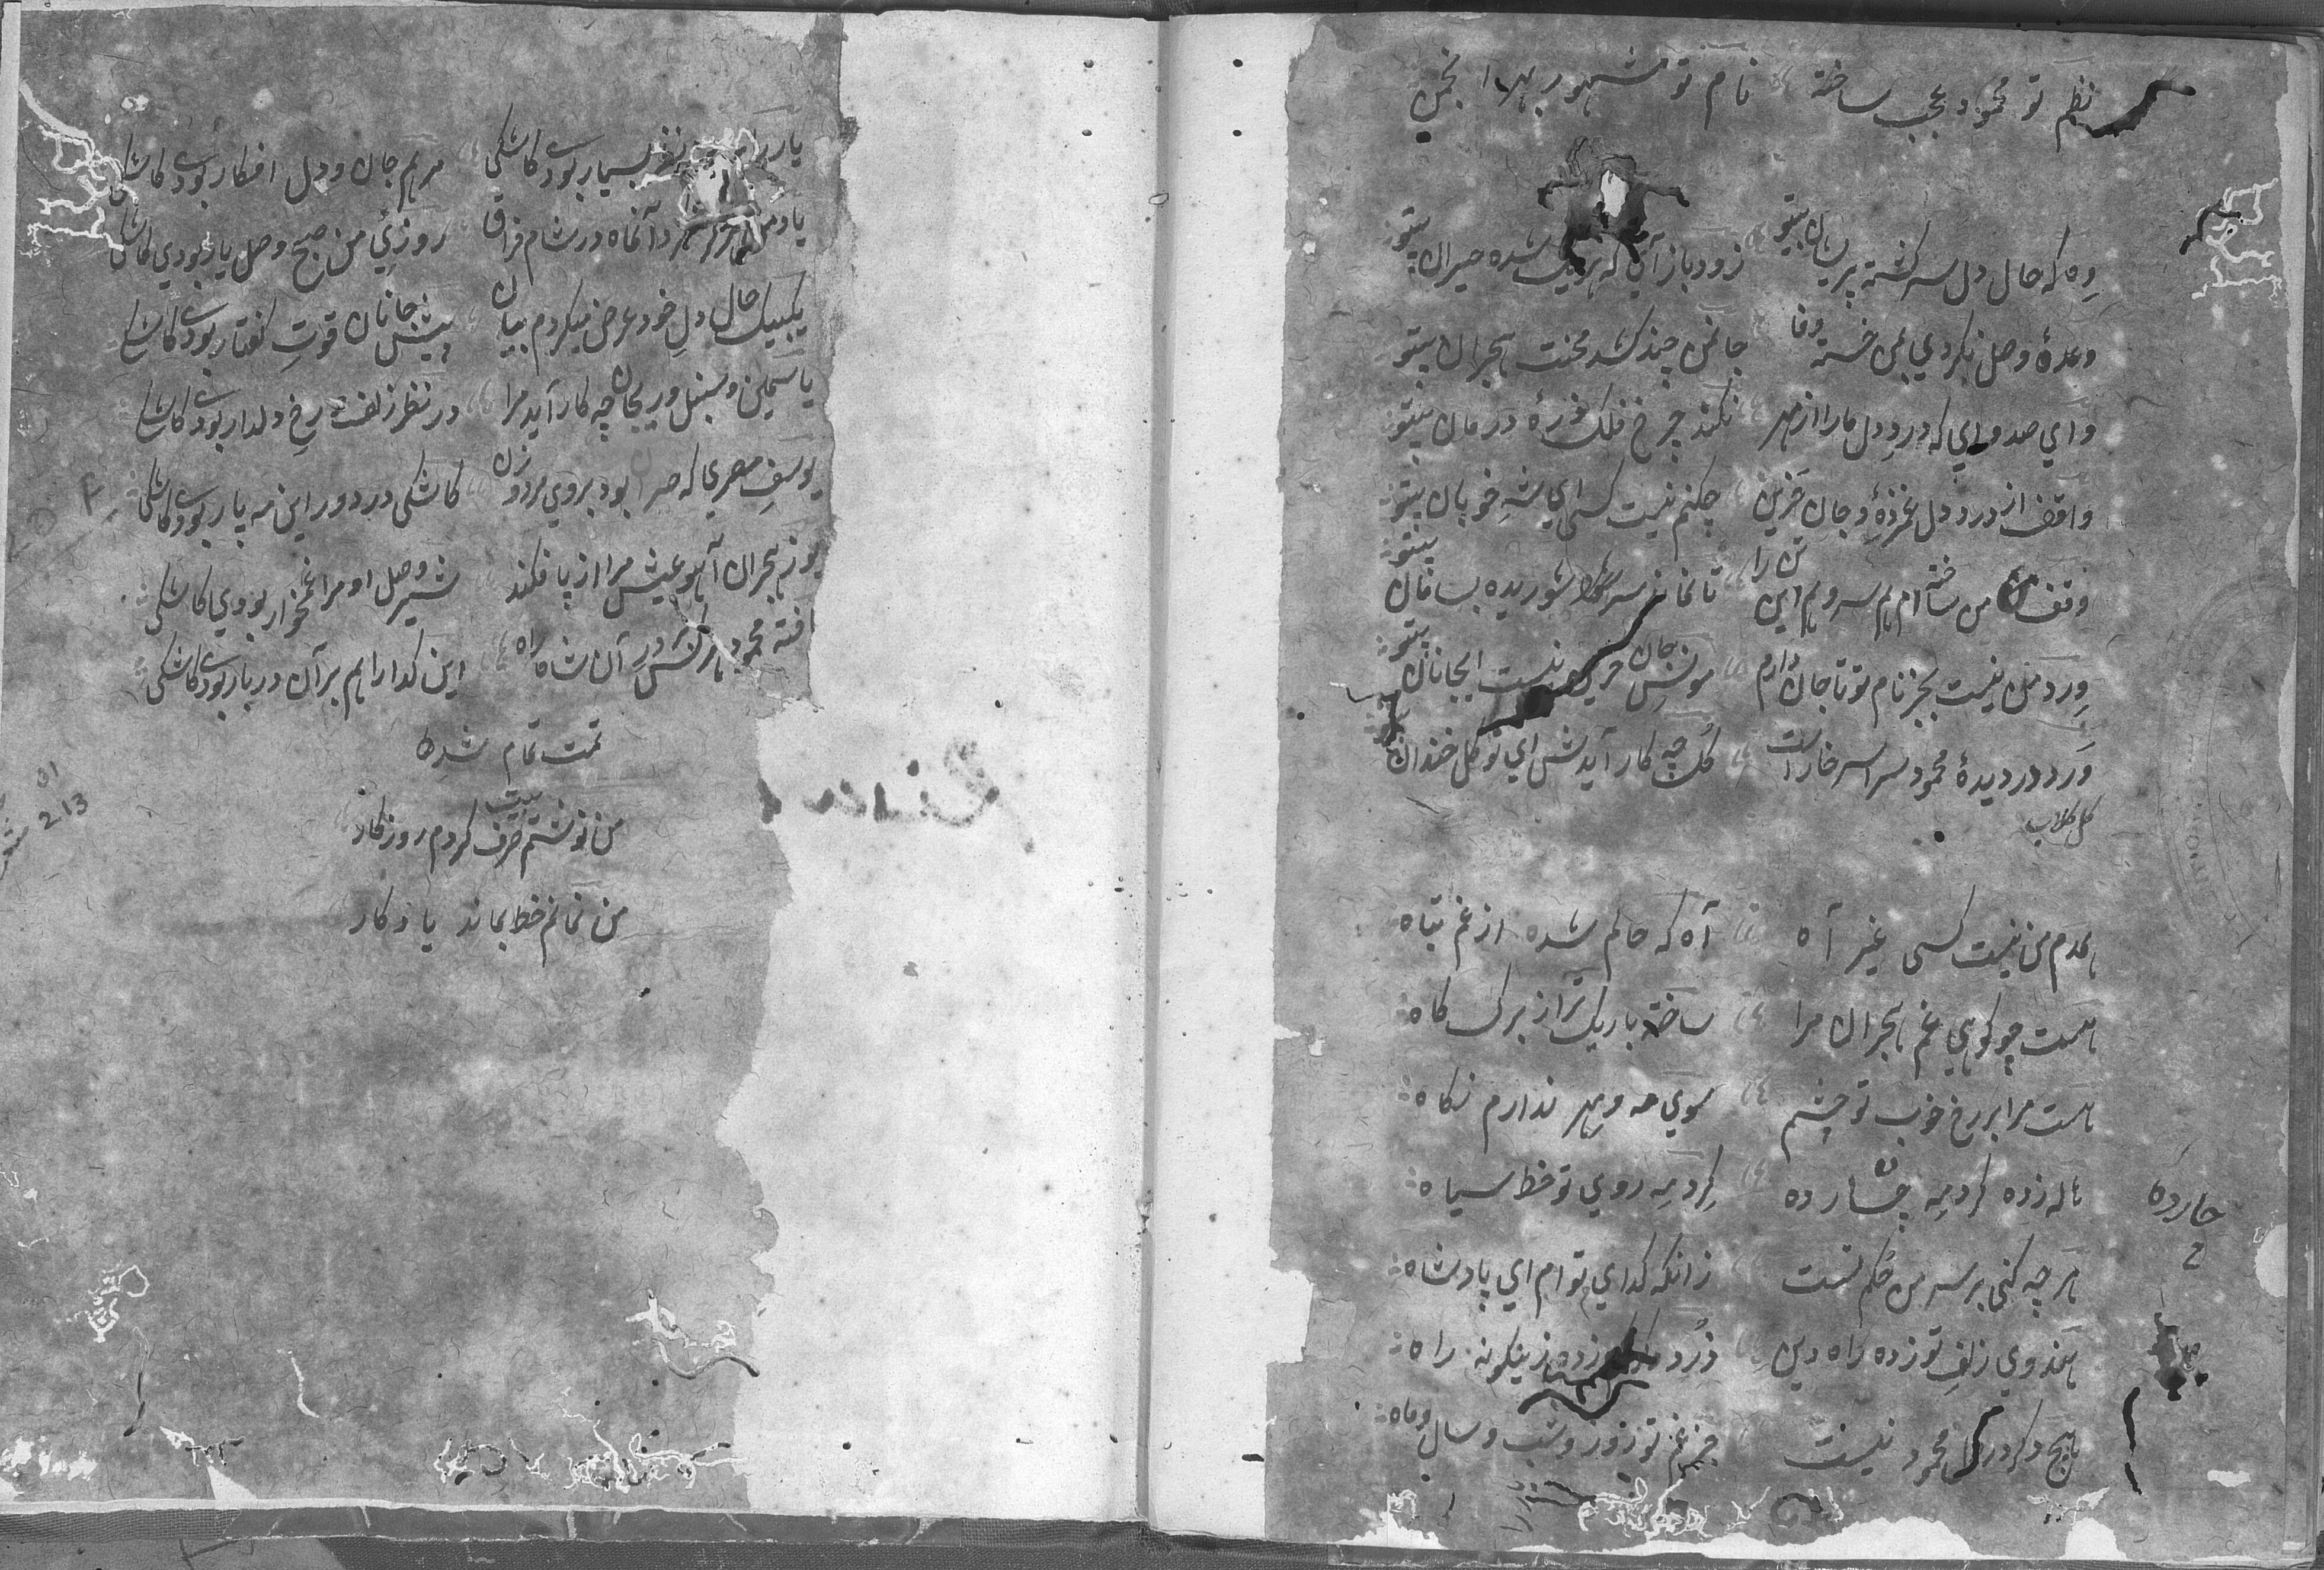 نظم تو محمود عجب ساخته نام تو مشهور بهر انجمن
وه که حال دل سرگشته پریشان بیتو زود باز آی که شده حیران بیتو
وعدهٔ وصل نکردی بمن خسته وفا جانمن چند کشد محنت هجران بیتو
وای صد وای که درد دل ما را از مهر نکند چرخ فلک ذرهٔ درمان بیتو
واقف از درد دل غمزده و جان حزین چکنم نیست کسی ای شه خوبان بیتو
وقف من ساخته ام هم سر و هم این تن را تا نماند سر شوریده بسامان بیتو
ورد من نیست بجز نام تو تا جان دارم مونس جان نیست ایجانان بیتو
ورد در دیدهٔ محمود سراسر خار است گل چه کار آیدش ای نو گل خندان بیتو
گل گلاب
همدم من نیست کسی غیر آه آه که حالم شده از غم تباه
هست چو کوهی غم هجران مرا ساخته باریک تر از برگ کاه
هست مرا بر رخ خوب تو چشم سوی مه و مهر ندارم نگاه
هاله زده گرد مه چارده گرد مه روی تو خط سیاه
چارده
هر چه کنی بر سر من حکم تست زانکه گدای تو ام ای پادشاه
هندوی زلف تو زده راه دین دزد زده زینگونه راه
هیچ دگر در دل محمود نیست جز غم تو روز و شب و سال و ماه
یار بسیار بودی کاشکی مرهم جان و دل افکار بودی کاشکی
یاد آنماه در شام فراق روزیِ من صبح وصل یار بودی کاشکی
یکبیک حال دل خود عرض میکردم بیان پیش جانان قوت گفتار بودی کاشکی
یاسمین و سنبل و ریحان چه کار آید مرا در نظر زلف و رخ دلدار بودی کاشکی
یوسف مصری که بود بروی مرد و زن کاشکی در دور این مه پار بودی کاشکی
یوز هجران آهو عیش مرا از پا فکند شیر وصل او مرا غمخوار بودی کاشکی
یافته محمود هر کس در آن شاه راه این گدا را هم بر آن دربار بودی کاشکی
تمت تمام شده
بیت
من نوشتم صرف کردم روزگار
من نمانم خط بماند یادگار
213